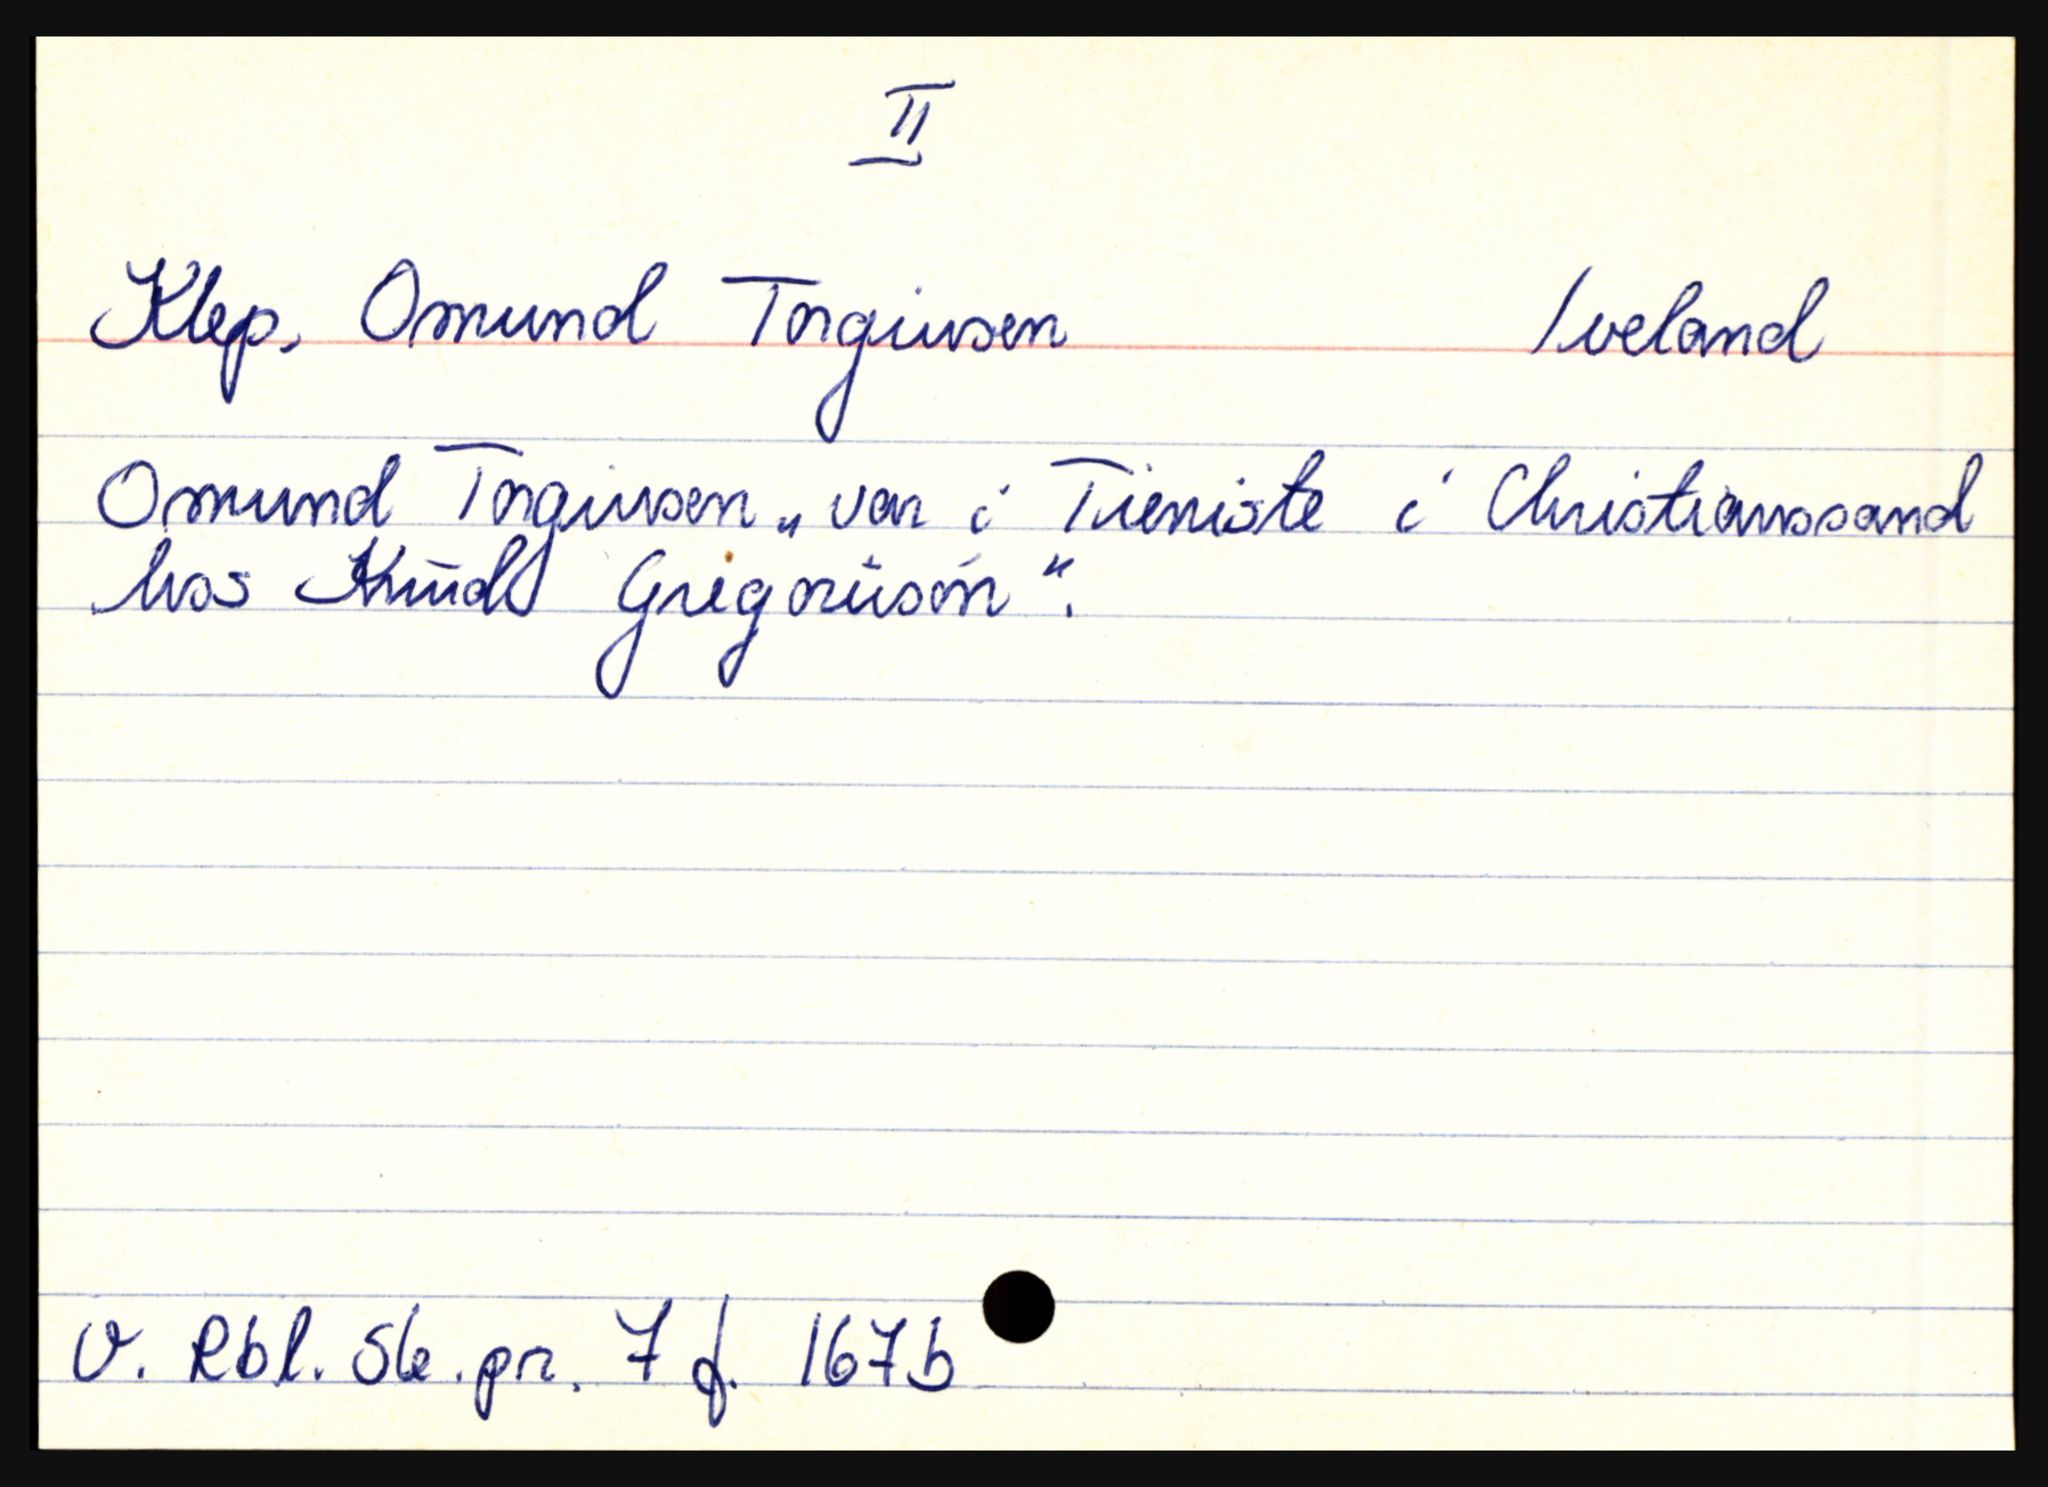 II
Klep, Omund Torgiusen Iveland
Omund Torgiusen „var i Tieniste i Christianssand
hos Knud Gregoriusön“.
V. Rbl. Sk.pr. 7 f. 167b